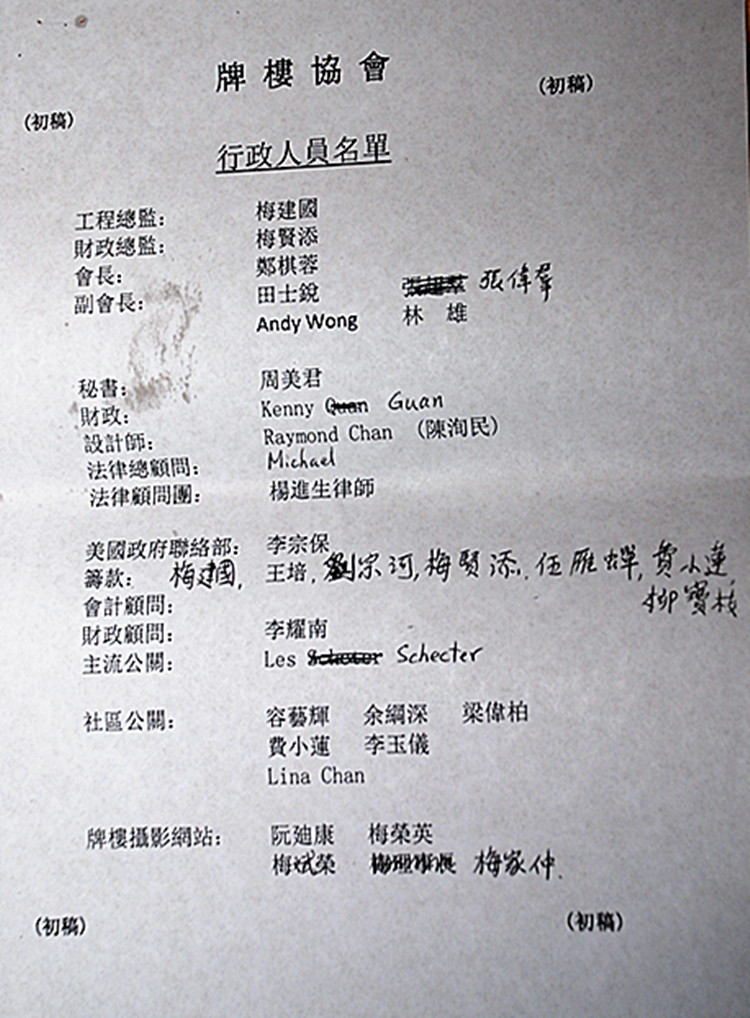 牌樓協會
(初稿) (初稿)
行政人員名單
工程總監: 梅建國
財政總監: 梅賢添
會長: 鄭棋蓉
副會長: 田士銳 張偉羣
Andy Wong 林 雄
秘書: 周美君
財政: Kenny Quan Guan
設計師: Raymond Chan (陳洵民)
法律總顧問: Michael
法律顧問團: 楊進生律師
美國政府聯絡部: 李宗保
籌款: 梅建國, 王培, 劉宗河, 梅賢添, 伍雁蟬, 費小蓮,
柳寶枝
會計顧問:
財政顧問: 李耀南
主流公關: Les Schecter
社區公關: 容藝輝 余綱深 梁偉柏
費小蓮 李玉儀
Lina Chan
牌樓攝影網站: 阮廸康 梅榮英
梅斌榮 梅家仲
(初稿) (初稿)